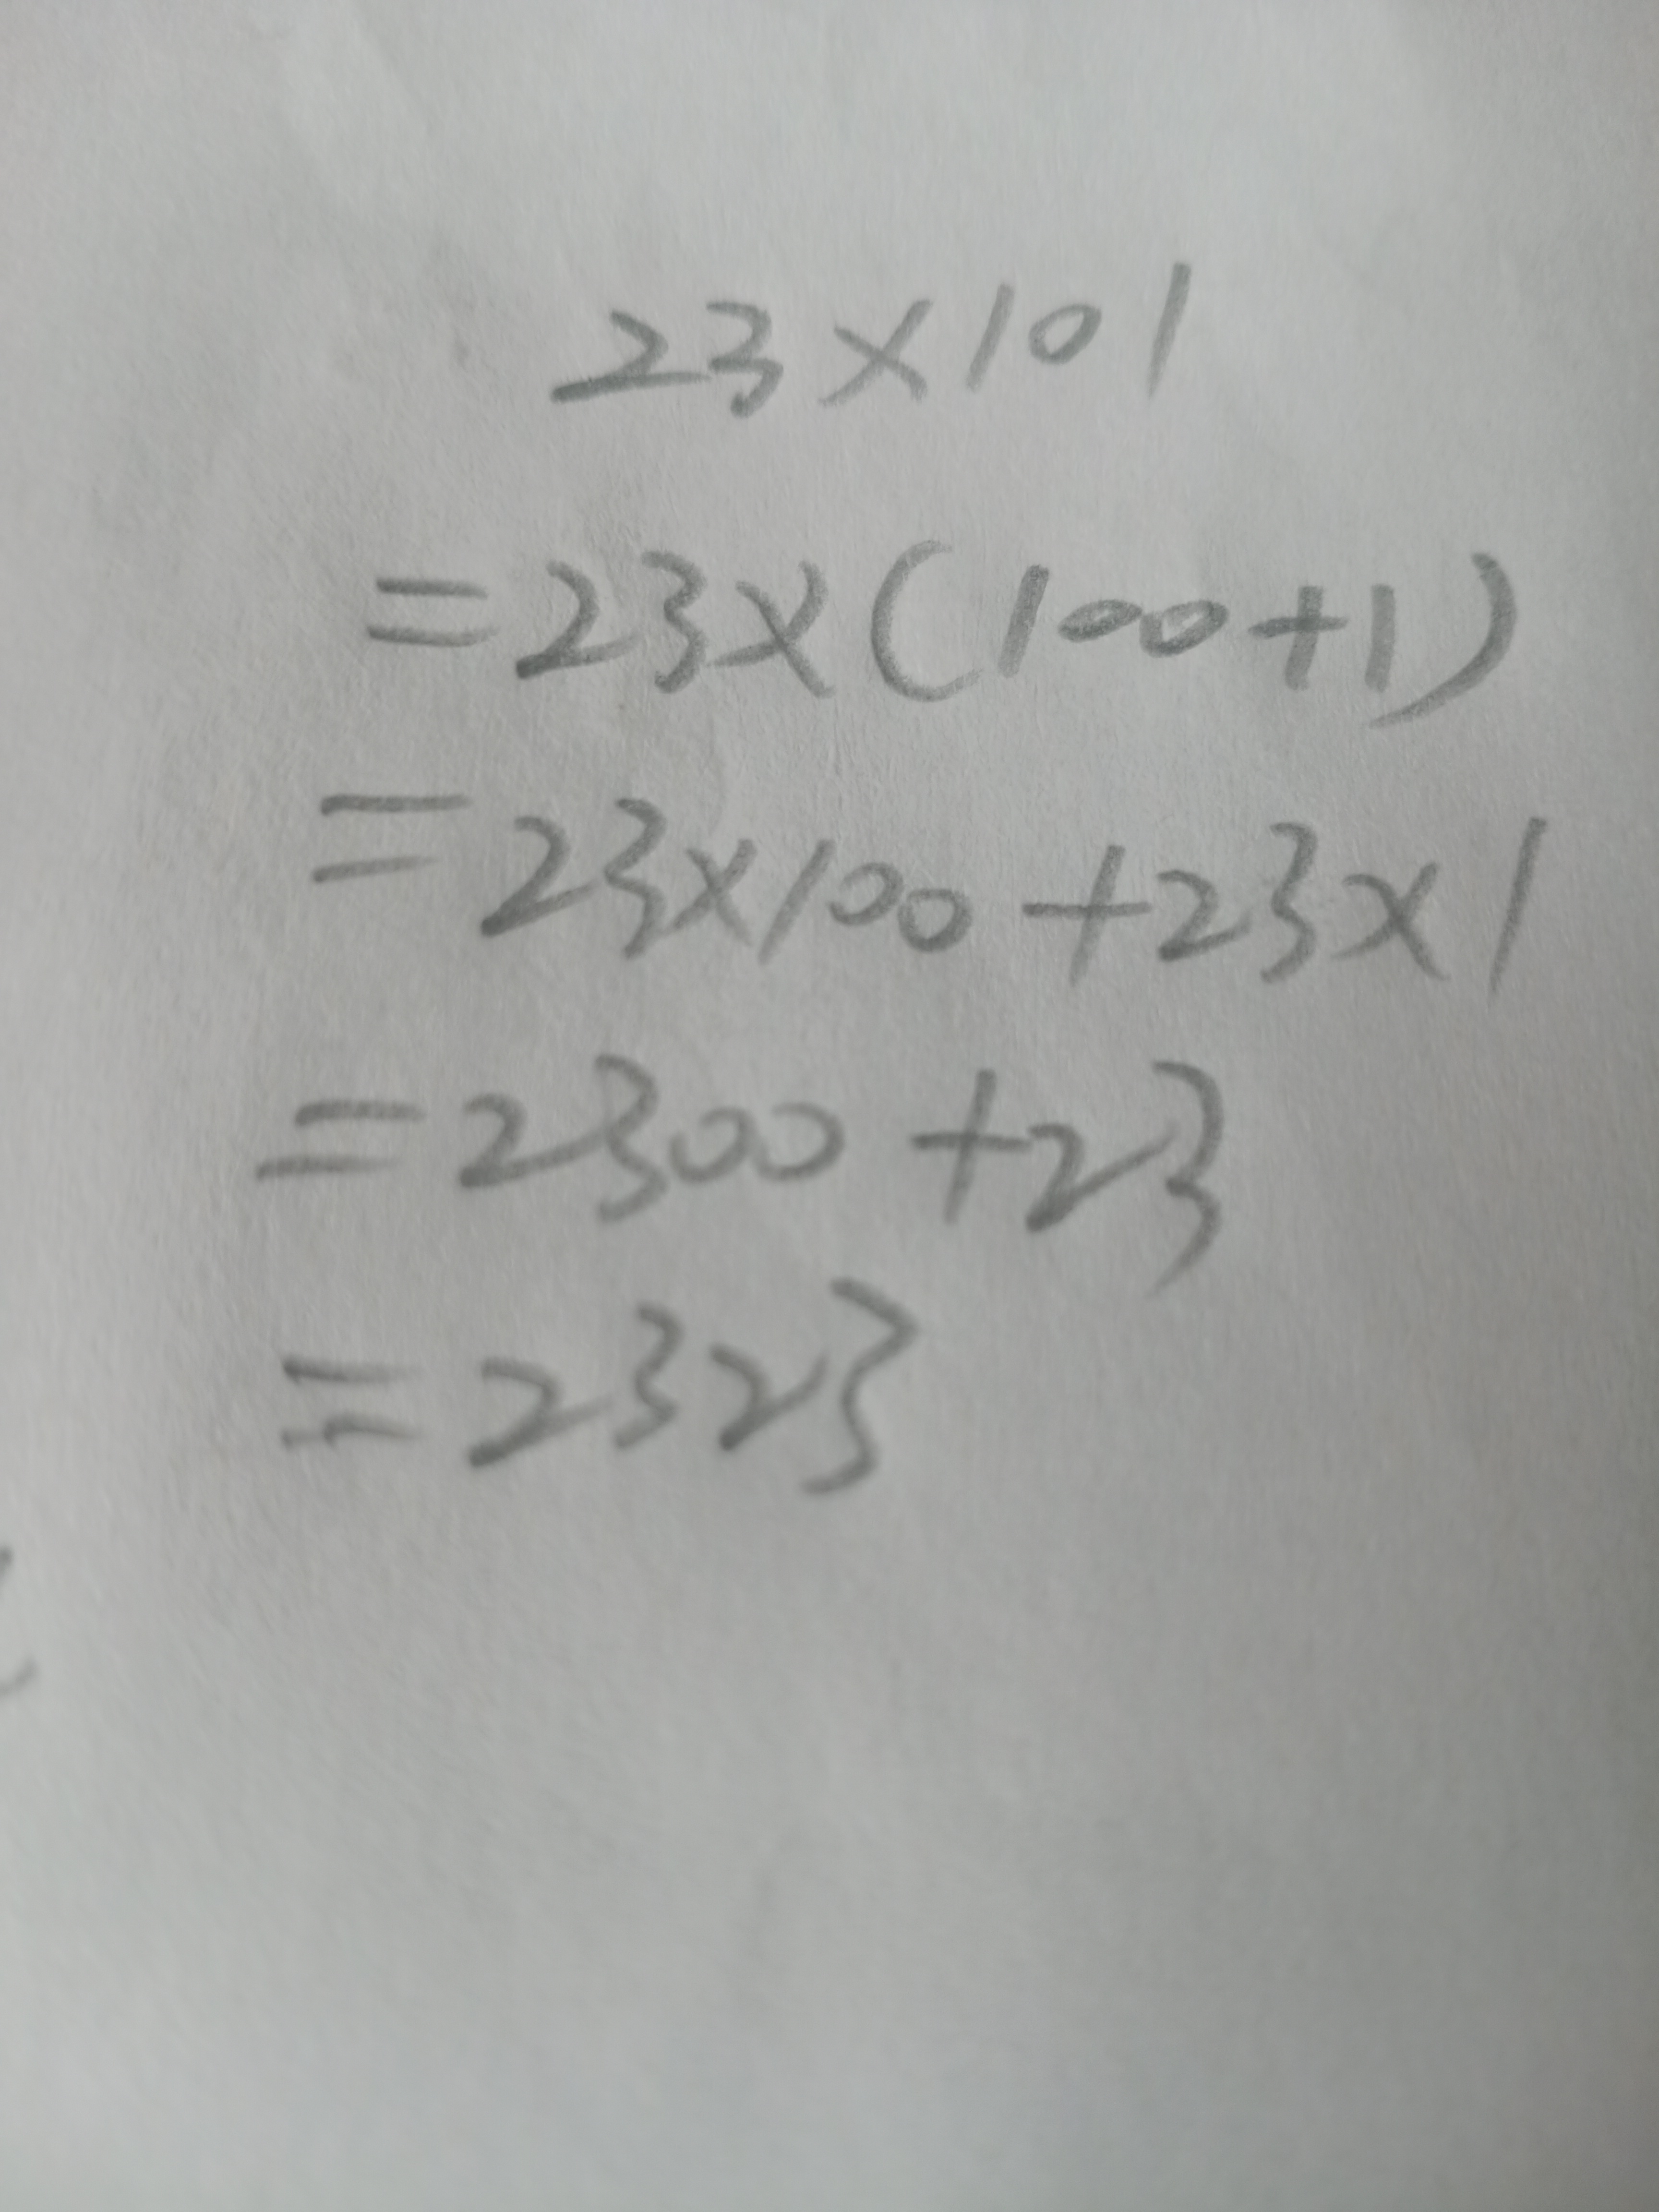 23×101
=23×(100+1)
=23×100+23×1
=2300+23
=2323